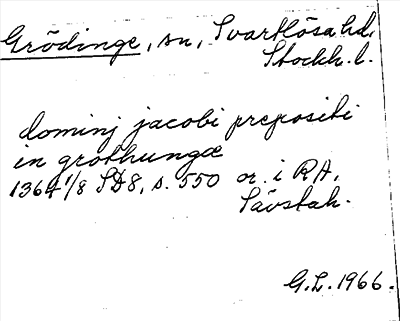 Grödinge, sn, Svartlösa hd,
Stockh. l.
dominj jacobi prepositi
in grothungæ
1364 1/8 SD8, s. 550 or. i RA,
Sävstah.
G.L. 1966.